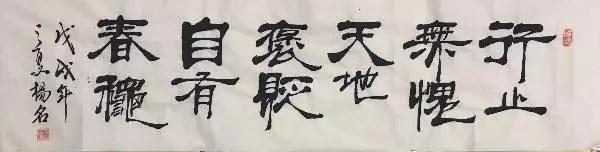 行止
無愧
天地
褒貶
自有
春龝
戊戌年
之夏楊名